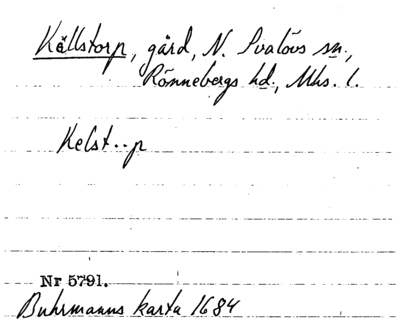 Källstorp, gård, N. Svalövs sn.,
Rönnebergs hd., Mhs. l.
Kelst..p
Nr 5791.
Buhrmanns karta 1684